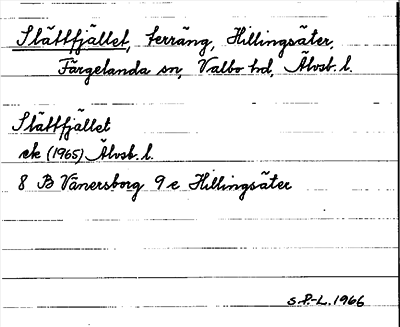 Slättfjället, terräng, Hillingsäter,
Färgelanda sn, Valbo hd, Älvsb. l.
Slättfjället
ek (1965) Älvsb. l.
8 B Vänersborg 9e Hillingsäter
S.P.-L. 1966